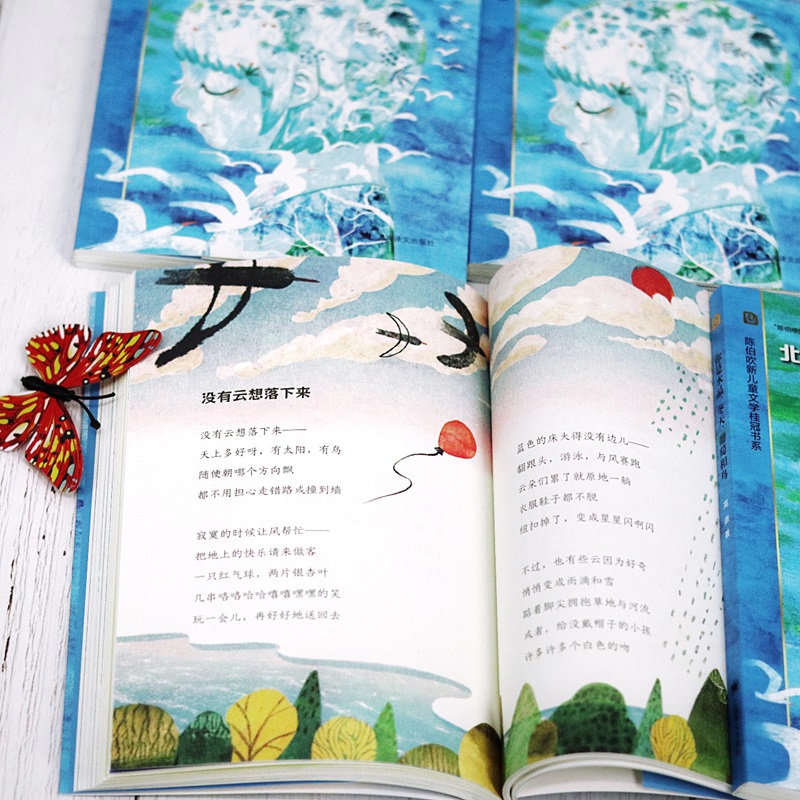 译文出版社
没有云想落下来
没有云想落下来——
天上多好呀，有太阳，有鸟
随便朝哪个方向飘
都不用担心走错路或撞到墙
寂寞的时候让风帮忙——
把地上的快乐请来做客
一只红气球，两片银杏叶
几串咯咯哈哈嘻嘻嘿嘿的笑
玩一会儿，再好好地送回去
蓝色的床大得没有边儿——
翻跟头，游泳，与风赛跑
云朵们累了就原地一躺
衣服鞋子都不脱
纽扣掉了，变成星星闪啊闪
不过，也有些云因为好奇
悄悄变成雨滴和雪
踮着脚尖拥抱草地与河流
或者，给没戴帽子的小孩
许多许多个白色的吻
陈伯吹新儿童文学桂冠书系
北